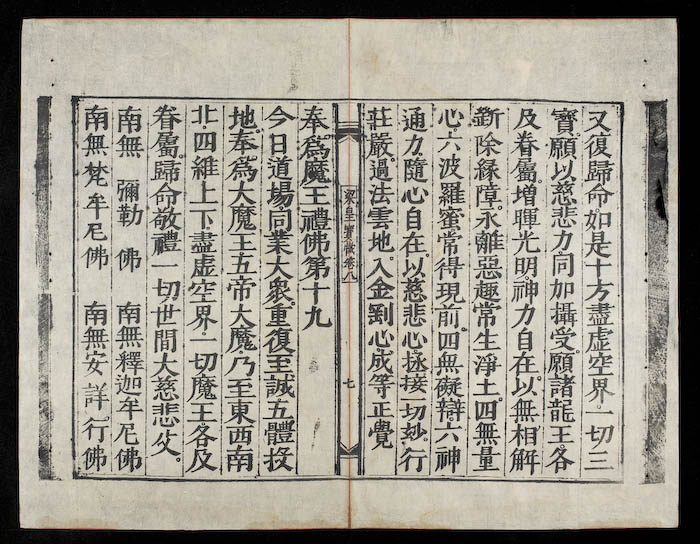 又復歸命如是十方盡虛空界。一切三
寶。願以慈悲力同加攝受。願諸龍王。各
及眷屬。增暉光明。神力自在。以無相解
斷除緣障。永離惡趣。常生淨土。四無量
心。六波羅蜜。常得現前。四無礙辯。六神
通力。隨心自在。以慈悲心。拯接一切。妙行
莊嚴。過法雲地。入金剛心。成等正覺
梁皇寶懺卷八
七
奉爲魔王禮佛第十九
今日道場同業大衆。重復至誠五體投
地。奉爲大魔王五帝大魔。乃至東西南
北。四維上下。盡虛空界。一切魔王。各及
眷屬。歸命敬禮一切世間大慈悲父。
南無 彌勒 佛 南無釋迦牟尼佛
南無梵牟尼佛 南無安詳行佛